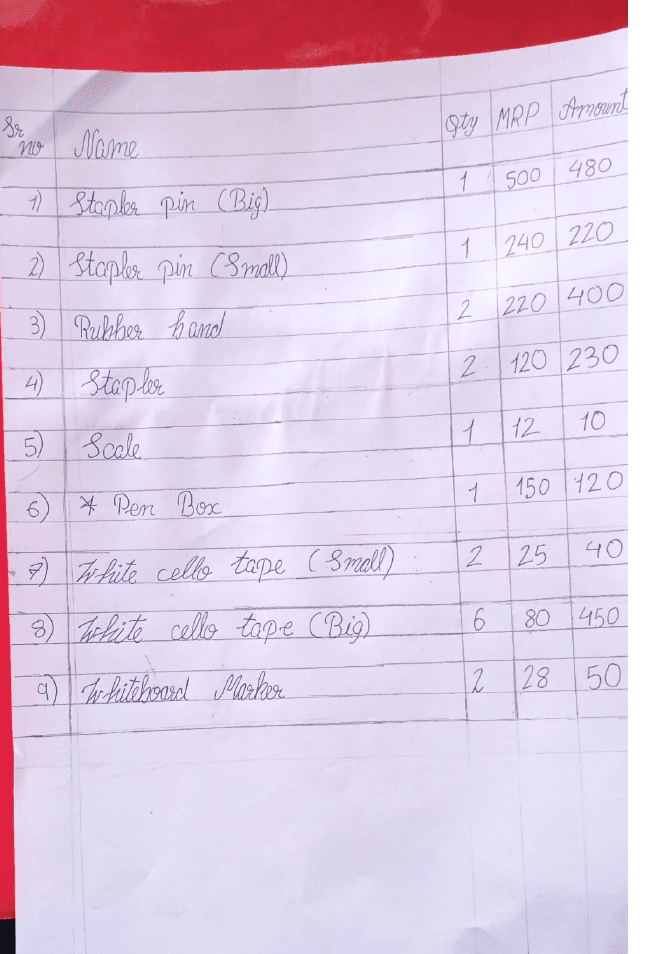 Sr no Name Qty MRP Amount
1) Stapler pin (Big) 1 500 480
2) Stapler pin (Small) 1 240 220
3) Rubber band 2 220 400
4) Stapler 2 120 230
5) Scale 1 12 10
6) * Pen Box 1 150 120
7) White cello tape (Small) 2 25 40
8) White cello tape (Big) 6 80 450
9) Whiteboard Marker 2 28 50